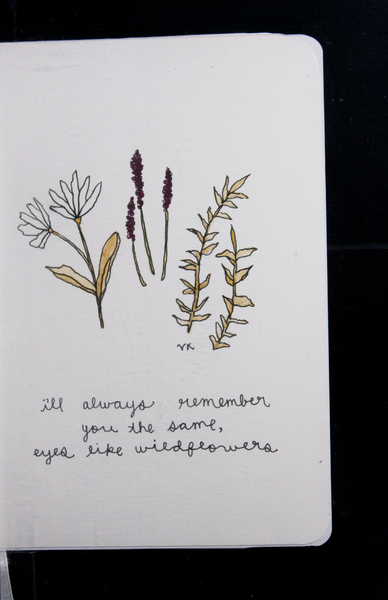 VK
ill always remember
you the same,
eyes like wildflowers